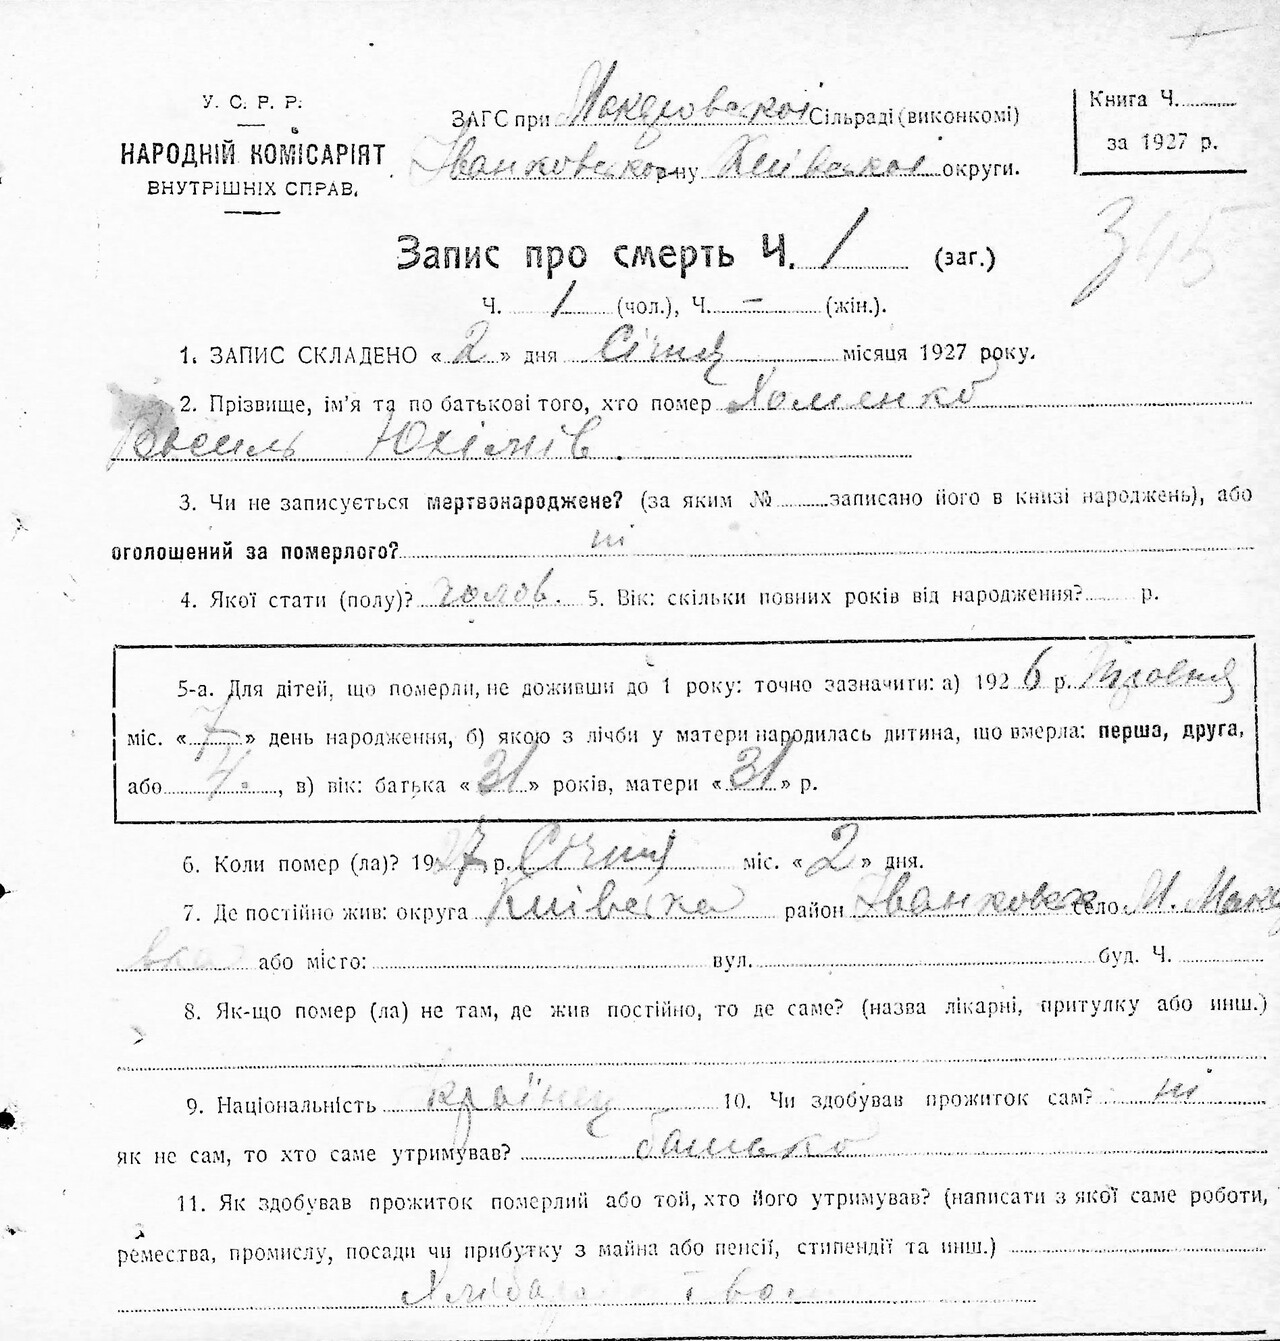 У. С. Р. Р.
НАРОДНІЙ КОМІСАРІЯТ
ВНУТРІШНІХ СПРАВ.
ЗАГС при Макаровскоі Сільраді (виконкомі)
Іванковско р-ну Київскоі округи.
Книга Ч.
за 1927 р.
345
Запис про смерть Ч. 1 (заг.)
Ч. 1 (чол.), Ч. – (жін.).
1. ЗАПИС СКЛАДЕНО « 2 » дня Січня місяця 1927 року.
2. Прізвище, ім'я та по батькові того, хто помер Хоменко
Василь Юхімів.
3. Чи не записується мертвонароджене? (за яким № записано його в книзі народжень), або
оголошений за померлого? ні
4. Якої стати (полу)? чолов. 5. Вік: скільки повних років від народження? р.
5-а. Для дітей, що померли, не доживши до 1 року: точно зазначити: а) 1926 р. Травня
міс. « 7 » день народження, б) якою з лічби у матери народилась дитина, що вмерла: перша, друга,
або 4., в) вік: батька « 31 » років, матери « 31 » р.
6. Коли помер (ла)? 1927 р. Січня міс. « 2 » дня.
7. Де постійно жив: округа Київска район Іванковск село М. Мака
вка або місто: вул. буд. Ч.
8. Як-що помер (ла) не там, де жив постійно, то де саме? (назва лікарні, притулку або инш.)
9. Національність Країнец 10. Чи здобував прожиток сам? ні
як не сам, то хто саме утримував? батько
11. Як здобував прожиток померлий або той, хто його утримував? (написати з якої саме роботи,
ремества, промислу, посади чи прибутку з майна або пенсії, стипендії та инш.)